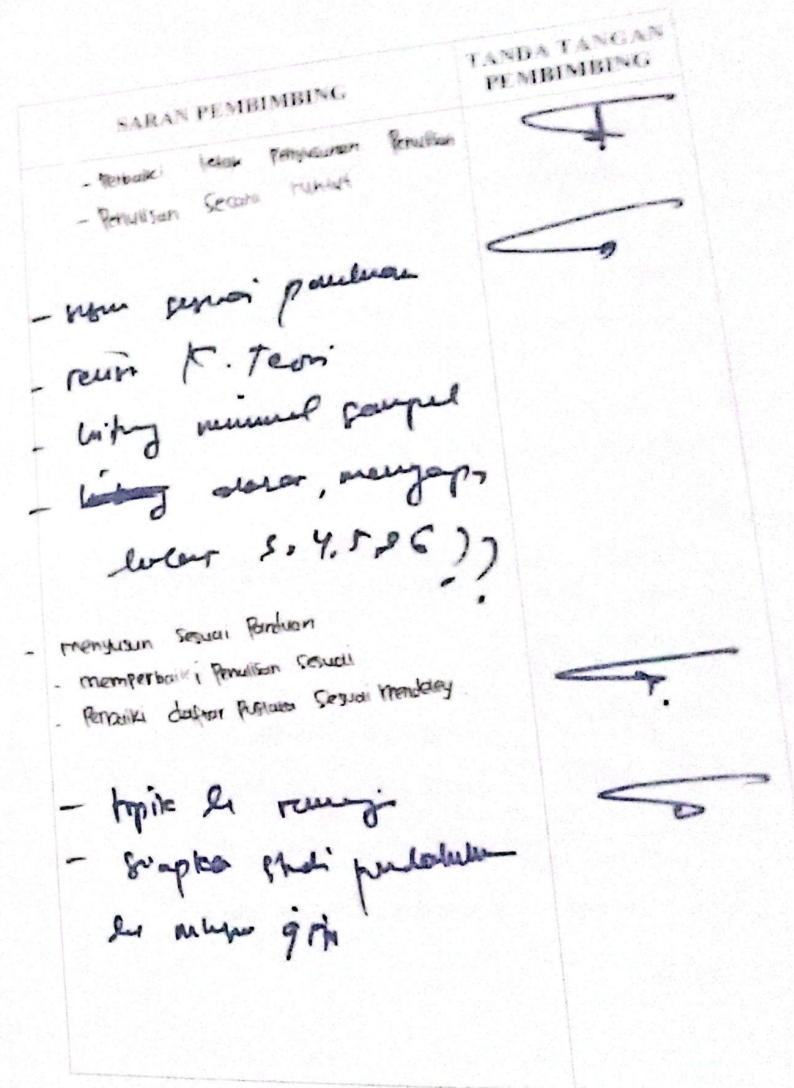 SARAN PEMBIMBING
TANDA TANGAN
PEMBIMBING
- Perbaiki letak Penyusunan Penulisan
- Penulisan Secara runtut
- susun sesuai panduan
- revisi K. Teori
- hitung minimal sampel
- dasar, mengapa
3, 4, 5, & 6 ??
- menyusun Sesuai Panduan
- memperbaiki Penulisan Sesuai
- Perbaiki daftar Pustaka Sesuai mendeley
- topik di
- siapkan studi pendahuluan